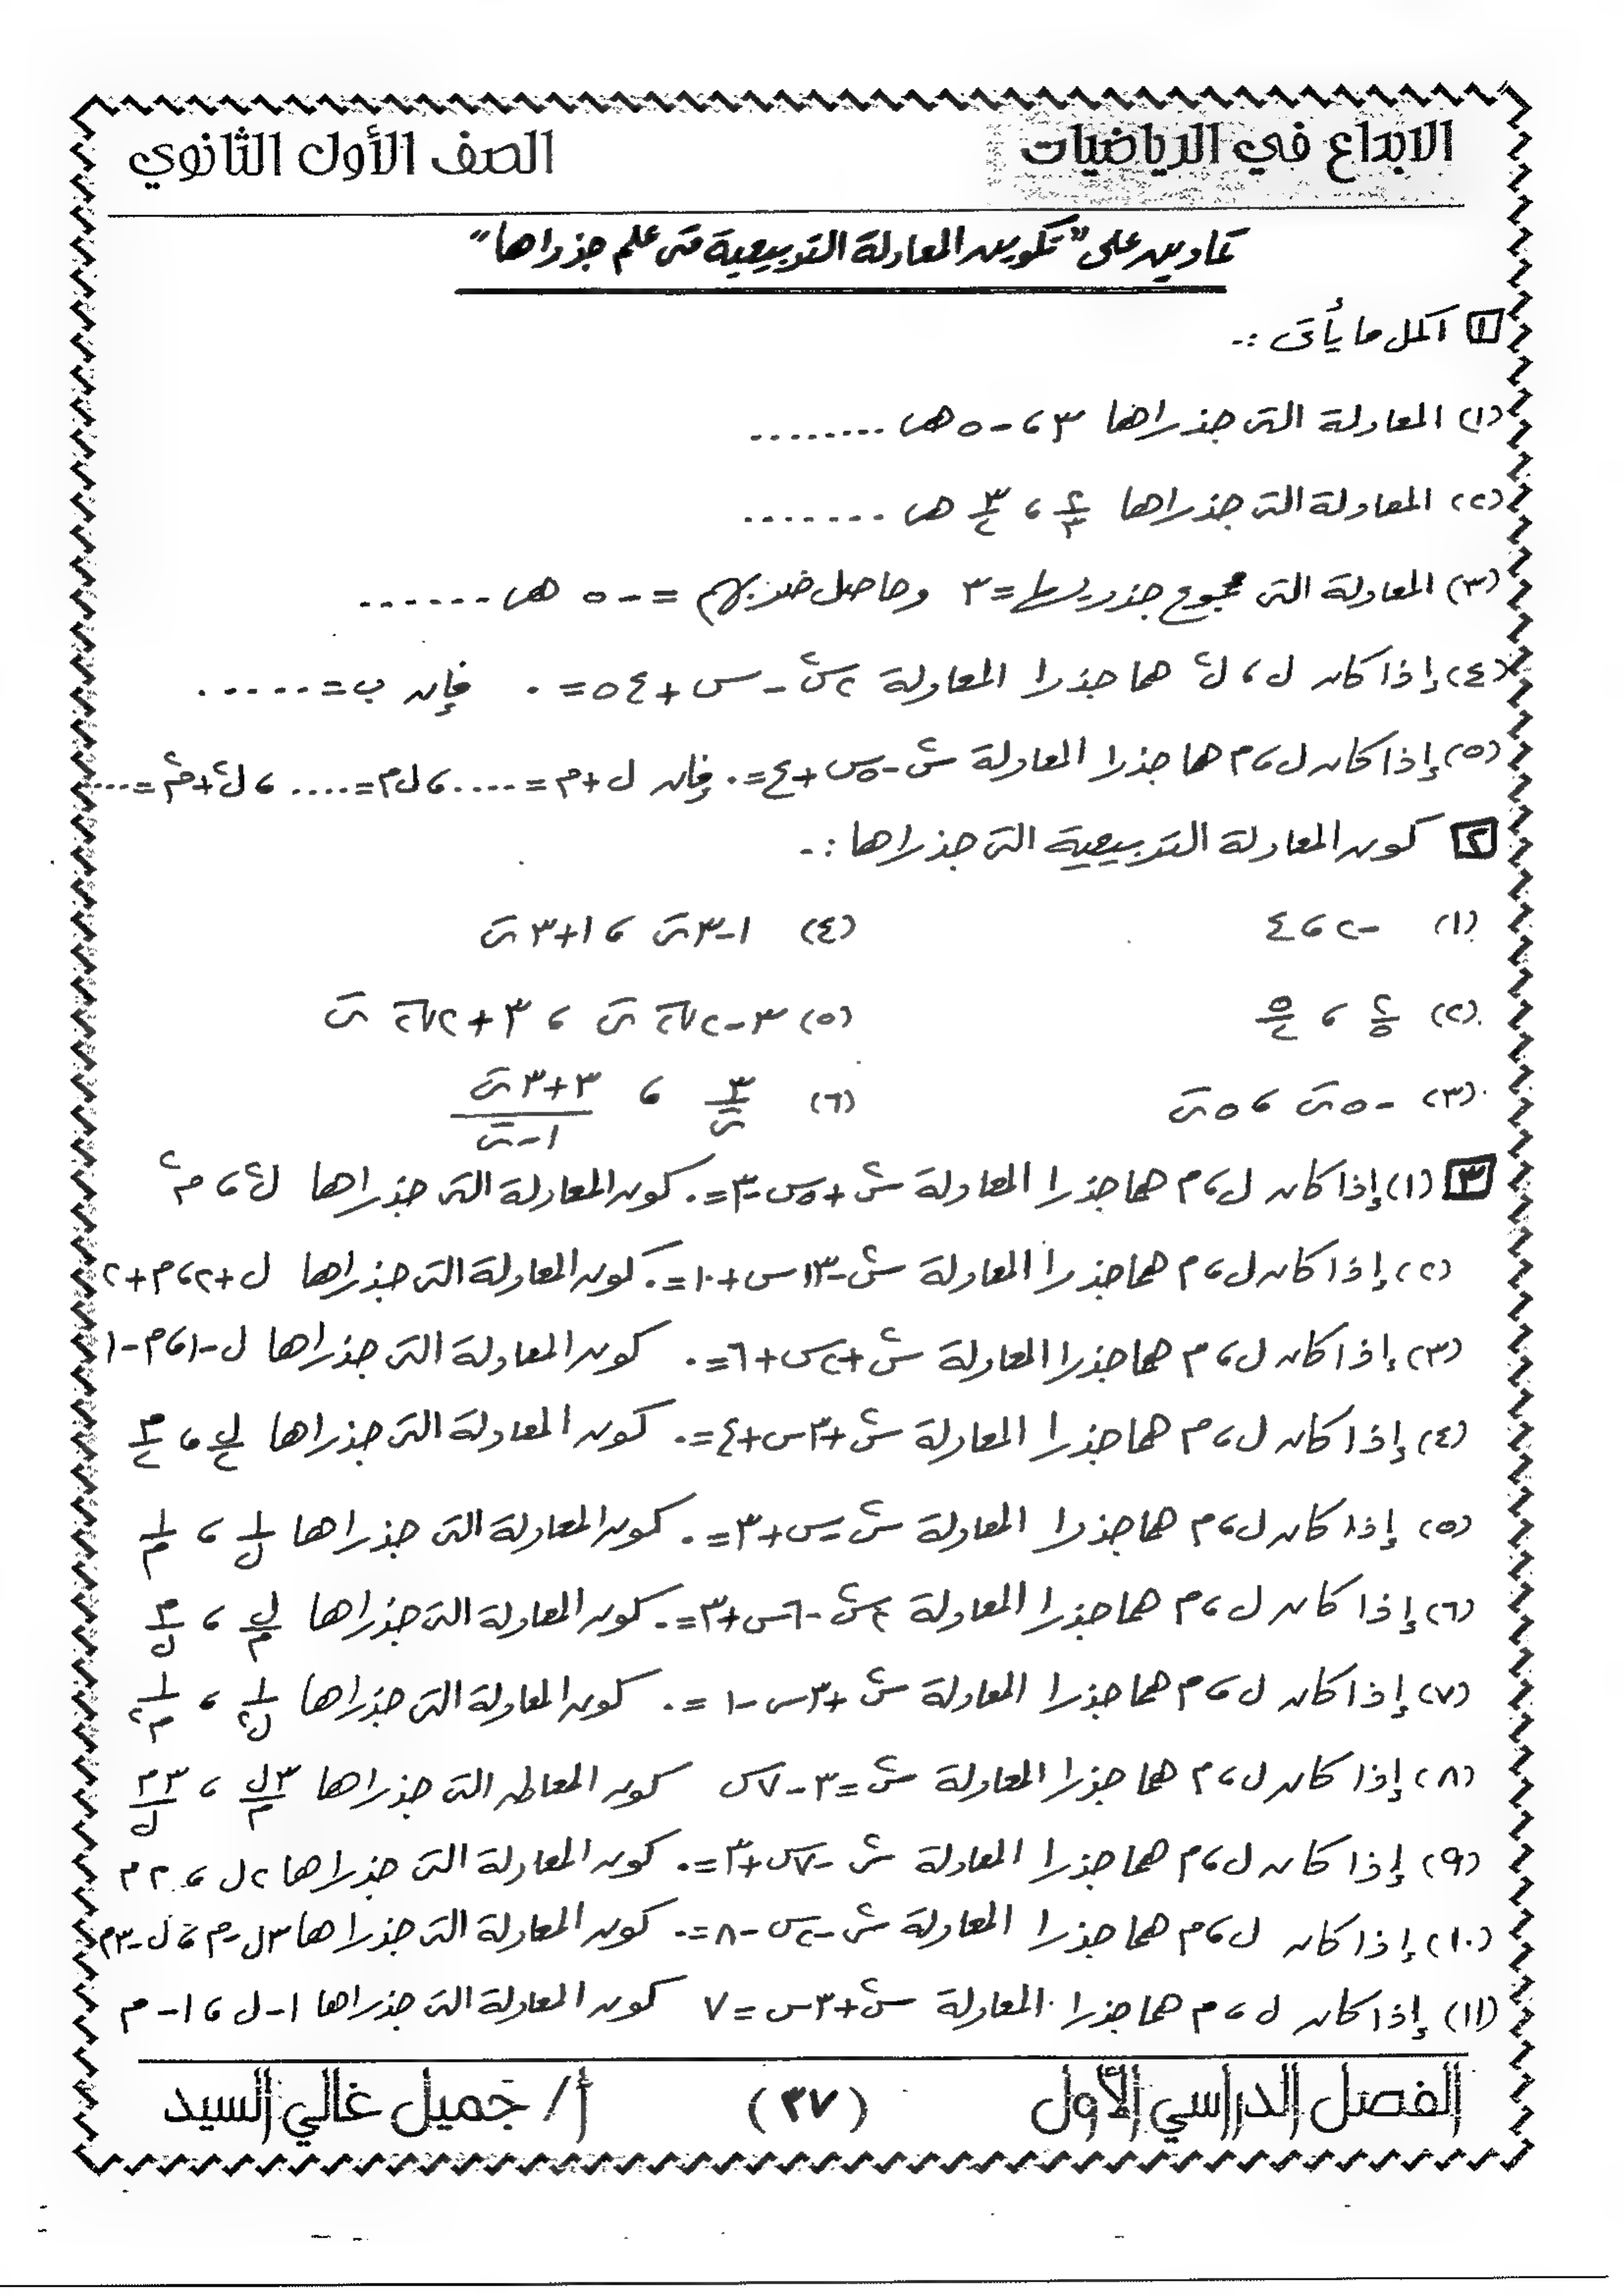 الابداع في الرياضيات
الصف الأول الثانوي
تمارين على "تكوين المعادلة التربيعية متى علم جذراها"
١ اكمل ما يأتى :-
(١) المعادلة التى جذراها ٣ ، -٥ هى ........
(٢) المعادلة التى جذراها ٢/٣ ، ٣/٢ هى .......
(٣) المعادلة التى مجموع جذريها = ٣ وحاصل ضربهم = -٥ هى ......
(٤) إذا كان ل ، ل² هما جذرا المعادلة فإن ب = .....
(٥) إذا كان ل ، م هما جذرا المعادلة س² - ٥س + ٤ = ٠ فإن ل + م = .... ، ل م = .... ، ل² + م² = ....
٢ كون المعادلة التربيعية التى جذراها :-
(١) -٢ ، ٤
(٤) ١-٣ت ، ١+٣ت
(٢) ٢/٥ ، ٥/٢
(٥) ٣-٢√٢ ت ، ٣+٢√٢ ت
(٣) -٥ت ، ٥ت
(٦) ٣/ت ، (٣+٣ت)/(١-ت)
٣ (١) إذا كان ل ، م هما جذرا المعادلة س² + ٥س - ٣ = ٠ كون المعادلة التى جذراها ل² ، م²
(٢) إذا كان ل ، م هما جذرا المعادلة س² - ١٣س + ١٠ = ٠ كون المعادلة التى جذراها ل+٢ ، م+٢
(٣) إذا كان ل ، م هما جذرا المعادلة س² + ٢س + ٦ = ٠ كون المعادلة التى جذراها ل-١ ، م-١
(٤) إذا كان ل ، م هما جذرا المعادلة س² + ٣س + ٤ = ٠ كون المعادلة التى جذراها ل/٢ ، م/٢
(٥) إذا كان ل ، م هما جذرا المعادلة كون المعادلة التى جذراها ١/ل ، ١/م
(٦) إذا كان ل ، م هما جذرا المعادلة ٢س² - ٦س + ٣ = ٠ كون المعادلة التى جذراها ل/م ، م/ل
(٧) إذا كان ل ، م هما جذرا المعادلة س² + ٣س - ١ = ٠ كون المعادلة التى جذراها ١/ل² ، ١/م²
(٨) إذا كان ل ، م هما جذرا المعادلة س² = ٣ - ٧س كون المعادلة التى جذراها ٣ل/م ، ٣م/ل
(٩) إذا كان ل ، م هما جذرا المعادلة س² - ٧س + ٣ = ٠ كون المعادلة التى جذراها ٢ل ، ٢م
(١٠) إذا كان ل ، م هما جذرا المعادلة س² - ٢س - ٨ = ٠ كون المعادلة التى جذراها ٣ل-م ، ل-٣م
(١١) إذا كان ل ، م هما جذرا المعادلة س² + ٣س = ٧ كون المعادلة التى جذراها ١-ل ، ١-م
الفصل الدراسي الأول
(٣٧)
أ/ جميل غالي السيد